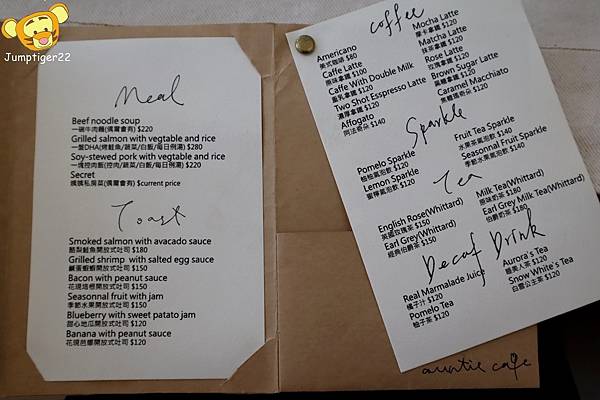 Jumptiger22
Meal
Beef noodle soup
一碗牛肉麵(偶爾會有) $220
Grilled salmon with vegtable and rice
一盤DHA(烤鮭魚/蔬菜/白飯/每日例湯) $280
Soy-stewed pork with vegtable and rice
一塊控肉飯(控肉/蔬菜/白飯/每日例湯) $220
Secret
嬸嬸私房菜(偶爾會有) $current price
Toast
Smoked salmon with avacado sauce
酪梨鮭魚開放式吐司 $180
Grilled shrimp with salted egg sauce
鹹蛋蝦蝦開放式吐司 $150
Bacon with peanut sauce
花現培根開放式吐司 $150
Seasonnal fruit with jam
季節水果開放式吐司 $150
Blueberry with sweet patato jam
甜心地瓜開放式吐司 $120
Banana with peanut sauce
花現芭娜開放式吐司 $120
coffee
Americano
美式咖啡 $80
Caffe Latte
原味拿鐵 $100
Caffe With Double Milk
重乳拿鐵 $120
Two Shot Esspresso Latte
濃厚拿鐵 $120
Affogato
阿法奇朵 $140
Mocha Latte
摩卡拿鐵 $120
Matcha Latte
抹茶拿鐵 $120
Rose Latte
玫瑰拿鐵 $120
Brown Sugar Latte
黑糖拿鐵 $120
Caramel Macchiato
焦糖瑪奇朵 $120
Sparkle
Pomelo Sparkle
柚柚氣泡飲 $130
Lemon Sparkle
蜜檸氣泡飲 $130
Fruit Tea Sparkle
水果茶氣泡飲 $140
Seasonnal Fruit Sparkle
季節水果氣泡飲 $140
Tea
English Rose(Whittard)
英國玫瑰茶 $150
Earl Grey(Whittard)
經典伯爵茶 $150
Milk Tea(Whittard)
原味奶茶 $180
Earl Grey Milk Tea(Whittard)
伯爵奶茶 $180
Decaf Drink
Real Marmalade Juice
橘子汁 $120
Pomelo Tea
柚子茶 $120
Aurora's Tea
睡美人茶 $120
Snow White's Tea
白雪公主茶 $120
auntie cafe